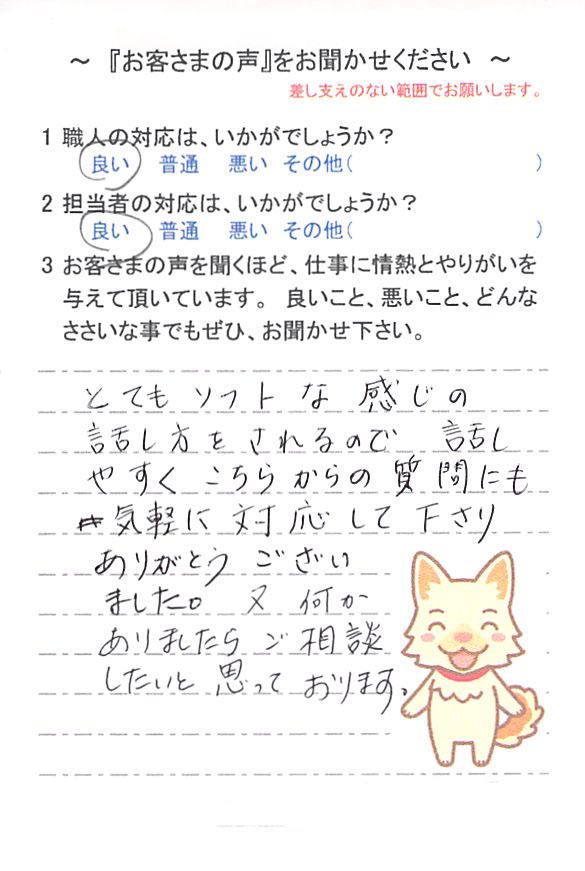 ～ 『お客さまの声』をお聞かせください ～
差し支えのない範囲でお願いします。
1 職人の対応は、いかがでしょうか？
良い 普通 悪い その他( )
2 担当者の対応は、いかがでしょうか？
良い 普通 悪い その他( )
3 お客さまの声を聞くほど、仕事に情熱とやりがいを
与えて頂いています。 良いこと、悪いこと、どんな
ささいな事でもぜひ、お聞かせ下さい。
とても ソフト な 感じの
話し方をされるので 話し
やすく こちらからの質問にも
気軽に対応して下さり
ありがとうござい
ました。 又 何か
ありましたらご相談
したいと思っております。